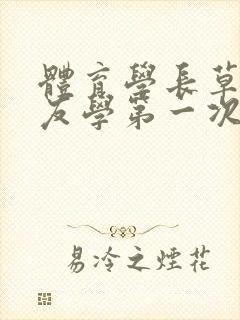 體育學長草
友學第一次
易冷之煙花